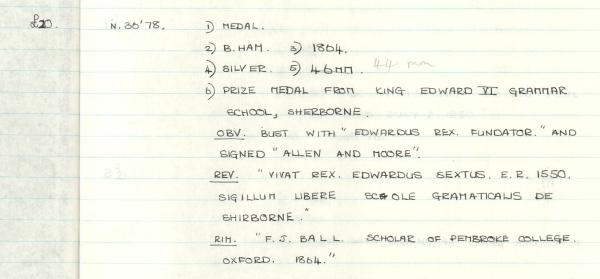 £20. N.30'78. 1) MEDAL.
2) B.HAM. 3) 1864.
4) SILVER. 5) 46MM. 44 mm
6) PRIZE MEDAL FROM KING EDWARD VI GRAMMAR
SCHOOL, SHERBORNE.
OBV. BUST WITH "EDWARDUS REX. FUNDATOR." AND
SIGNED "ALLEN AND MOORE".
REV. "VIVAT REX. EDWARDUS SEXTUS. E.R. 1550.
SIGILLUM LIBERE SCOLE GRAMATICALIS DE
SHIRBORNE."
RIM. "F.J. BALL. SCHOLAR OF PEMBROKE COLLEGE.
OXFORD. 1864."